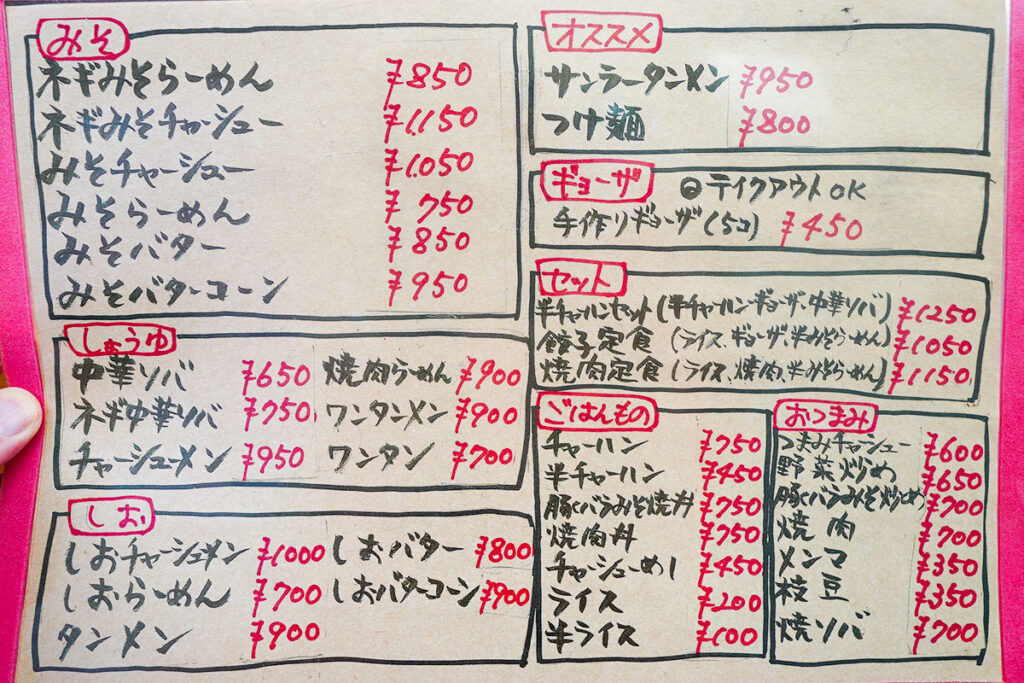 みそ
ネギみそらーめん ¥850
ネギみそチャーシュー ¥1,150
みそチャーシュー ¥1,050
みそらーめん ¥750
みそバター ¥850
みそバターコーン ¥950
しょうゆ
中華ソバ ¥650 焼肉らーめん ¥900
ネギ中華ソバ ¥750 ワンタンメン ¥900
チャーシューメン ¥950 ワンタン ¥700
しお
しおチャーシュメン ¥1000 しおバター ¥800
しおらーめん ¥700 しおバターコーン ¥900
タンメン ¥900
オススメ
サンラータンメン ¥950
つけ麺 ¥800
ギョーザ ◎テイクアウトOK
手作りギョーザ(5コ) ¥450
セット
半チャーハンセット(半チャーハン・ギョーザ、中華ソバ) ¥1250
餃子定食(ライス、ギョーザ、半みそらーめん) ¥1050
焼肉定食(ライス、焼肉、半みそらーめん) ¥1150
ごはんもの
チャーハン ¥750
半チャーハン ¥450
豚バラみそ焼丼 ¥750
焼肉丼 ¥750
チャーシューめし ¥450
ライス ¥200
半ライス ¥100
おつまみ
つまみチャーシュー ¥600
野菜炒め ¥650
豚バラみそ炒め ¥700
焼肉 ¥700
メンマ ¥350
枝豆 ¥350
焼ソバ ¥700